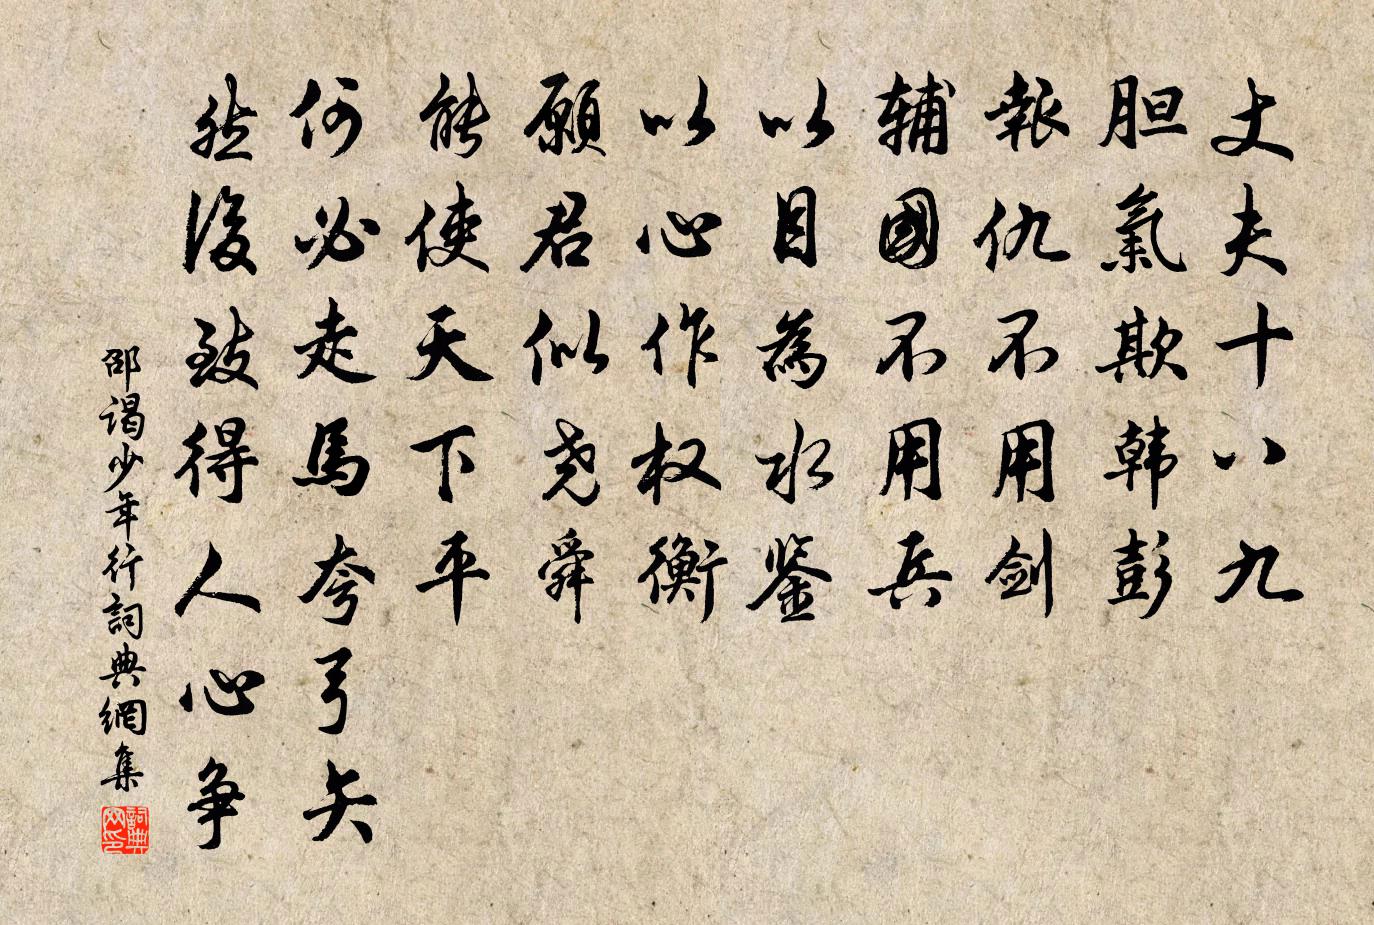 丈夫十八九
胆氣欺韩彭
報仇不用剑
辅國不用兵
以目為水鉴
以心作权衡
願君似尧舜
能使天下平
何必走馬夸弓矢
然後致得人心争
邵谒少年行詞典網集
詞典网印